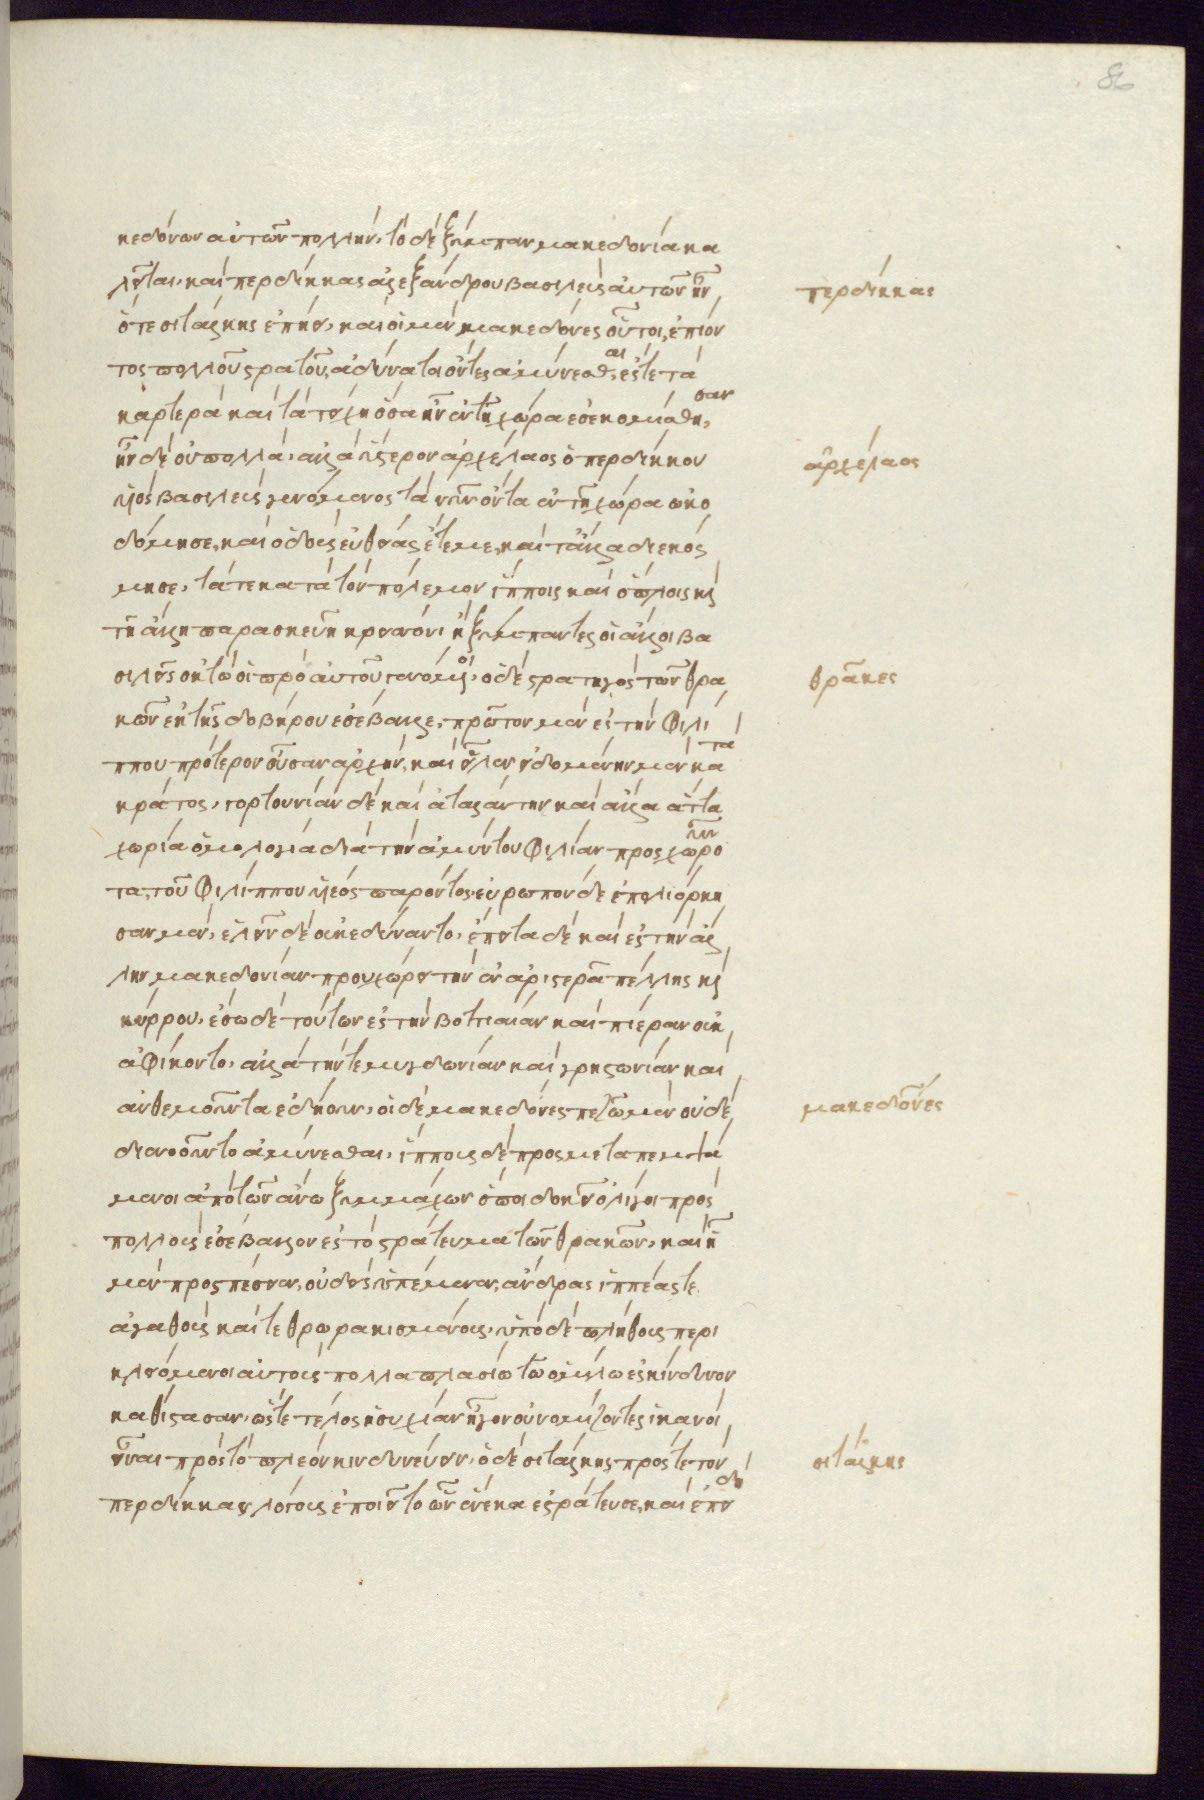 86
κεδόνων αὐτῶν πολλήν, τὸ δὲ ξύμπαν μακεδονία κα
λεῖται, καὶ περδίκκας ἀλεξάνδρου βασιλεὺς αὐτῶν ἦν
περδίκκας
ὅτε σιτάλκης ἐπήει, καὶ οἱ μὲν μακεδόνες οὗτοι, ἐπιόν
τος πολλοῦ στρατοῦ, ἀδύνατοι ὄντες ἀμύνεσθαι, ἔς τε τὰ
καρτερὰ καὶ τὰ τείχη ὅσα ἦν ἐν τῇ χώρα ἐσεκομίσθησαν,
ἦν δὲ οὐ πολλά, ἀλλὰ ὕστερον ἀρχέλαος ὁ περδίκκου
ἀρχέλαος
υἱὸς βασιλεὺς γενόμενος τὰ νῦν ὄντα ἐν τῇ χώρα ὠκο
δόμησε, καὶ ὁδοὺς εὐθείας ἔτεμε, καὶ τἄλλα διεκόσ
μησε, τά τε κατὰ τὸν πόλεμον ἵπποις καὶ ὅπλοις καὶ
τῇ ἄλλη παρασκευῆ κρείσσονι ἢ ξύμπαντες οἱ ἄλλοι βα
σιλεῖς ὀκτὼ οἱ πρὸ αὐτοῦ γενόμενοι, ὁ δὲ στρατηγὸς τῶν θρα
θρᾶκες
κῶν ἐκ τῆς δοβήρου ἐσέβαλλε, πρῶτον μὲν ἐς τὴν Φιλί
ππου πρότερον οὖσαν ἀρχήν, καὶ εἷλεν εἰδομένην μὲν κατὰ
κράτος, γορτουνίαν δὲ καὶ ἀταλάντην καὶ ἄλλα ἄττα
χωρία ὁμολογία διὰ τὴν ἀμύντου Φιλίαν προσχωροῦν
τα, τοῦ Φιλίππου υἱέος παρόντος, εὐρωπὸν δὲ ἐπολιόρκη
σαν μέν, ἑλεῖν δὲ οὐκ ἐδύναντο, ἔπειτα δὲ καὶ ἐς τὴν ἄλ
λην μακεδονίαν προυχώρει τὴν ἐν ἀριστερᾶ πέλλης καὶ
κύρρου, ἔσω δὲ τούτων ἐς τὴν βοττιαίαν καὶ πιέραν οὐκ
ἀφίκοντο, ἀλλὰ τήν τε μυγδωνίαν καὶ γρηστωνίαν καὶ
ἀνθεμοῦντα ἐδήουν, οἱ δὲ μακεδόνες πεζῶ μὲν οὐδὲ
μακεδόνες
διενοοῦντο ἀμύνεσθαι, ἵππους δὲ προσμεταπεμψά
μενοι ἀπὸ τῶν ἄνω ξυμμάχων ὅποι δοκεῖ ὀλίγοι πρὸς
πολλοὺς ἐσέβαλλον ἐς τὸ στράτευμα τῶν θρακῶν, καὶ ἧ
μὲν προσπέσειεν, οὐδεὶς ὑπέμενεν, ἄνδρας ἱππέας τε
ἀγαθοὺς καὶ τεθρωρακισμένους, ὑπὸ δὲ πλήθους περι
κλειόμενοι αὐτοὺς πολλαπλασίω τῶ ὁμίλω ἐς κίνδυνον
καθίστασαν, ὥστε τέλος ἡσυχίαν ἦγον οὐ νομίζοντες ἱκανοὶ
εἶναι πρὸς τὸ πλέον κινδυνεύειν, ὁ δὲ σιτάλκης πρός τε τὸν
σιτάλκης
περδίκκαν λόγους ἐποιεῖτο ὧν ἕνεκα ἐστράτευσε, καὶ ἐπειδὴ